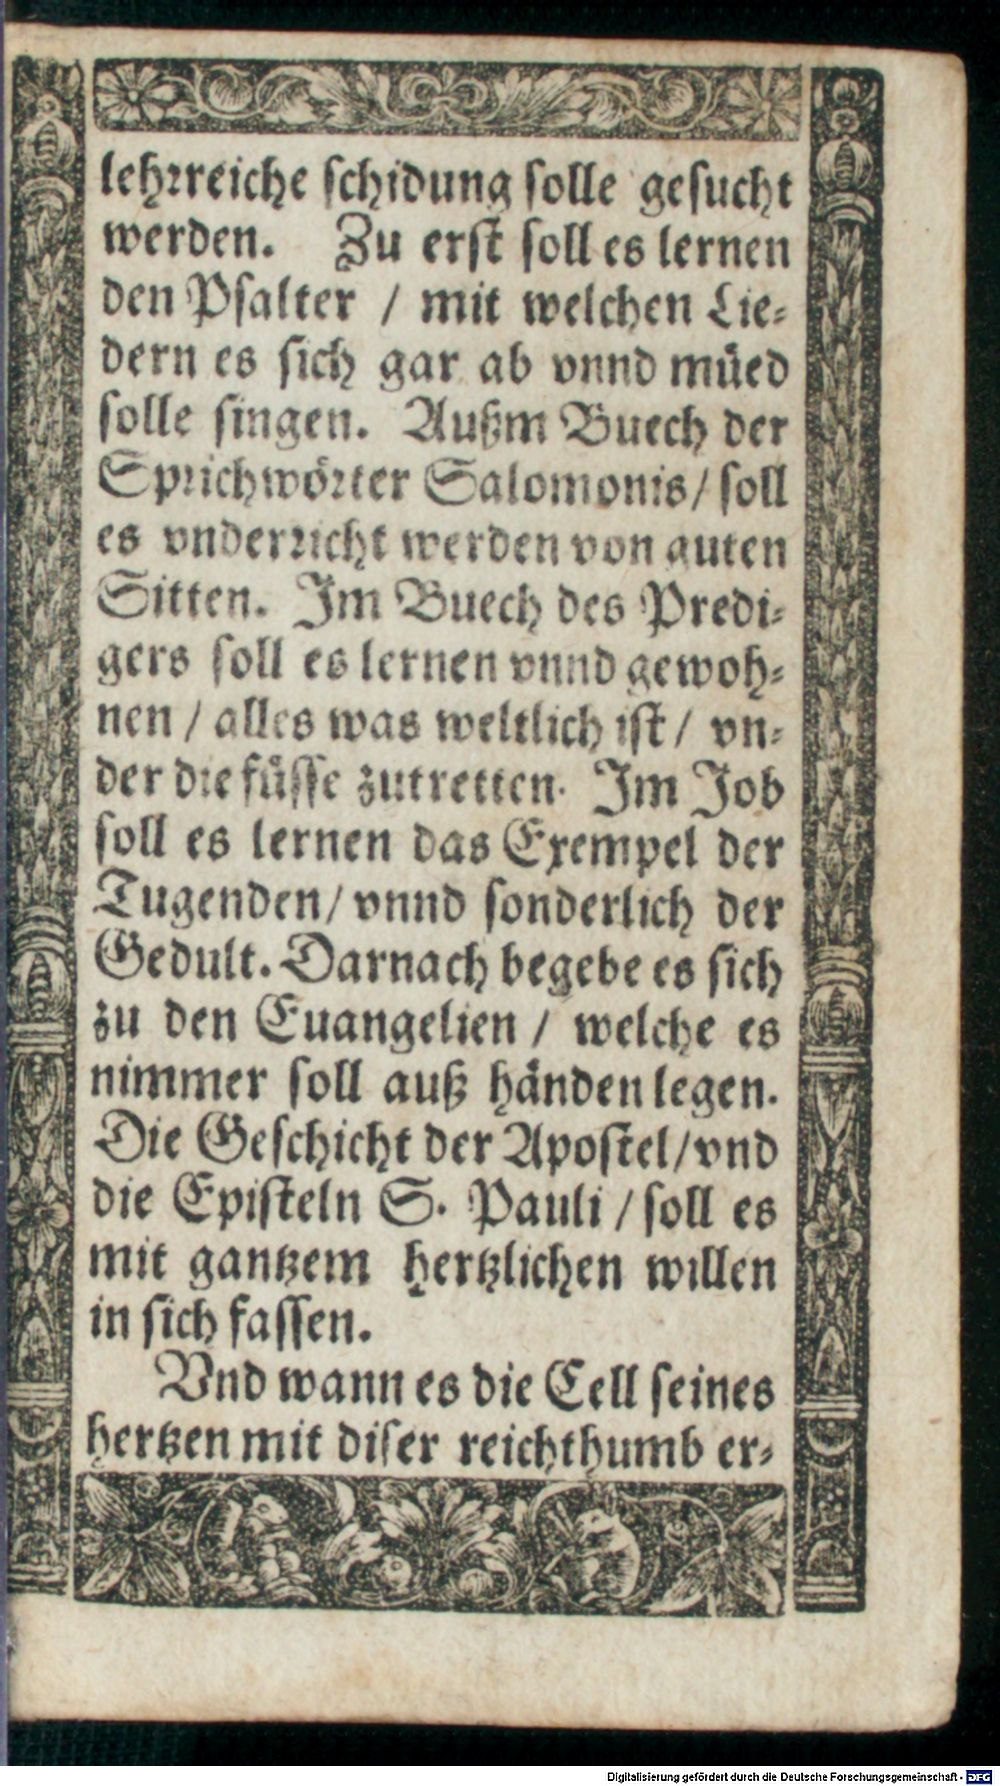 lehrreiche schidung solle gesucht
werden. Zu erst soll es lernen
den Psalter / mit welchen Lie-
dern es sich gar ab vnnd müed
solle singen. Außm Buech der
Sprichwörter Salomonis / soll
es vnderricht werden von guten
Sitten. Im Buech des Predi-
gers soll es lernen vnnd gewoh-
nen / alles was weltlich ist / vn-
der die füsse zutretten. Im Job
soll es lernen das Exempel der
Tugenden / vnnd sonderlich der
Gedult. Darnach begebe es sich
zu den Euangelien / welche es
nimmer soll auß händen legen.
Die Geschicht der Apostel / vnd
die Episteln S. Pauli / soll es
mit gantzem hertzlichen willen
in sich fassen.
Vnd wann es die Cell seines
hertzen mit diser reichthumb er-
Digitalisierung gefördert durch die Deutsche Forschungsgemeinschaft - DFG